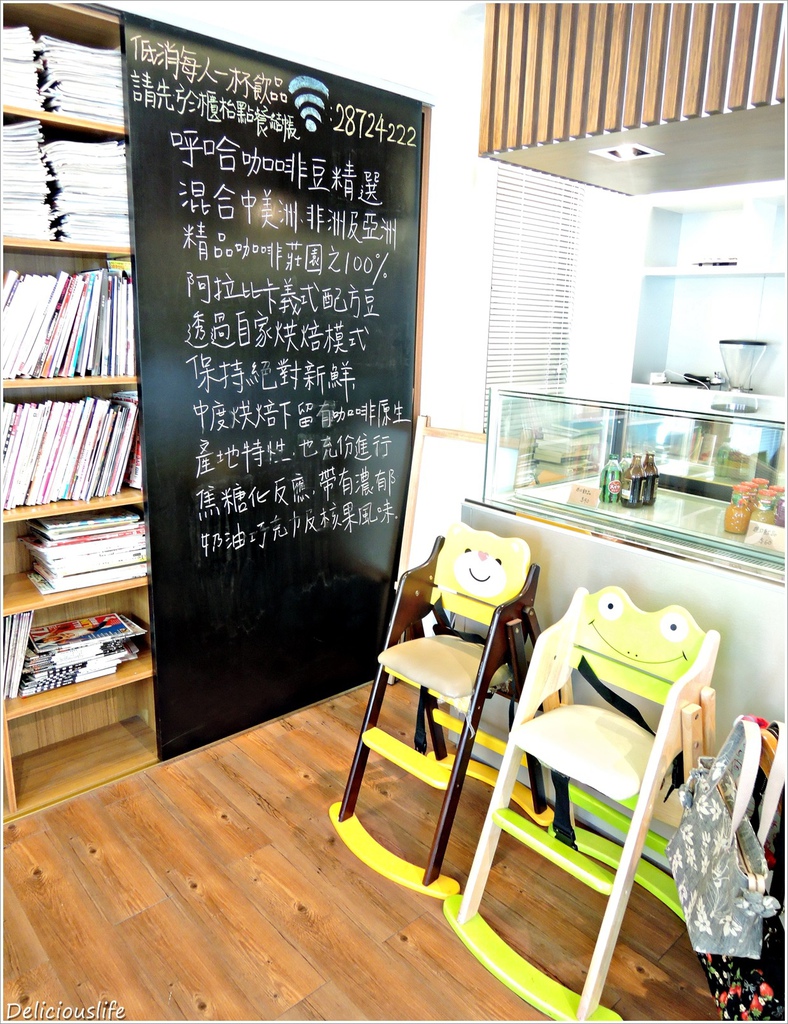 低消每人一杯飲品
請先於櫃枱點餐結帳
:28724222
呼哈咖啡豆精選
混合中美洲、非洲及亞洲
精品咖啡莊園之100%
阿拉比卡義式配方豆
透過自家烘焙模式
保持絕對新鮮,
中度烘焙下留有咖啡原生
產地特性.也充份進行
焦糖化反應.帶有濃郁
奶油巧克力及核果風味.
Deliciouslife